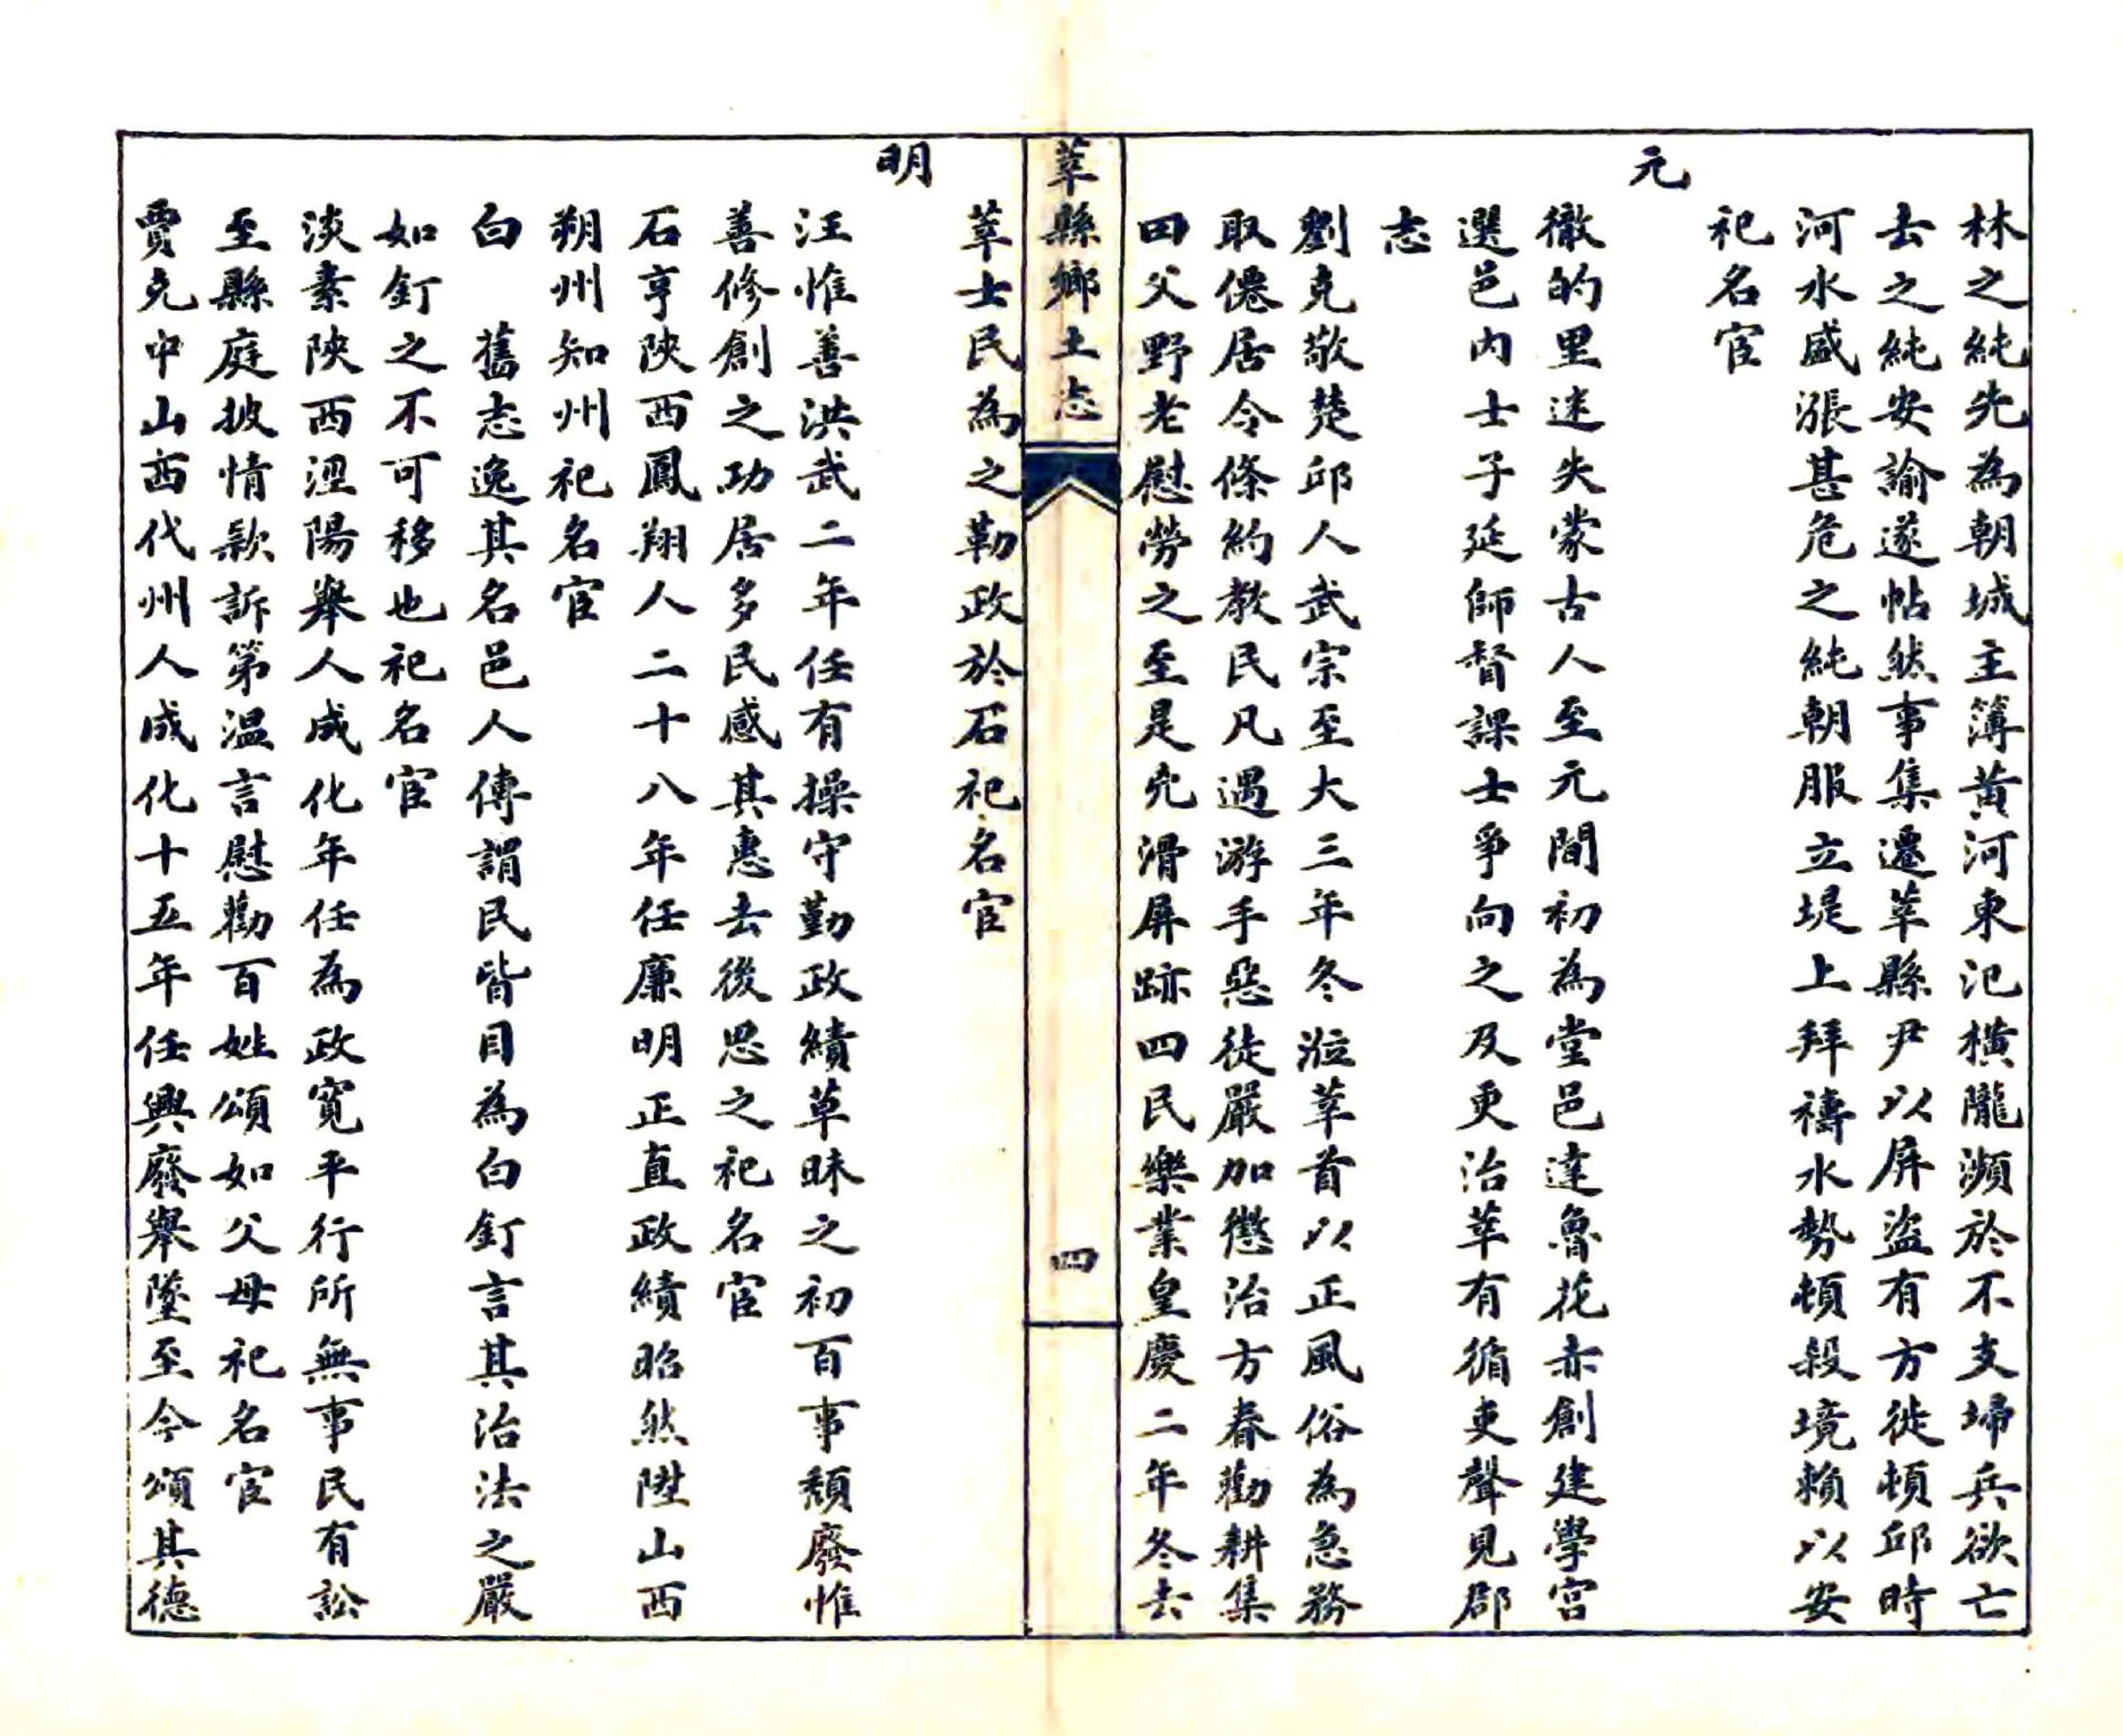 林之純先為朝城主簿黃河東汜橫隴瀕於不支埽兵欲亡
去之純安諭遂帖然事集遷莘縣尹以屏盜有方徙頓邱時
河水盛漲甚危之純朝服立堤上拜禱水勢頓殺境賴以安
祀名宦
元
徹的里迷失蒙古人至元間初為堂邑達魯花赤創建學宮
選邑內士子延師督課士爭向之及更治莘有循吏聲見郡
志
劉克敬楚邱人武宗至大三年冬涖莘首以正風俗為急務
取僊居令條約教民凡遇游手惡徒嚴加懲治方春勸耕集
田父野老慰勞之至是兇滑屏跡四民樂業皇慶二年冬去
莘縣鄉土志
四
莘士民為之勒政於石祀名宦
明
汪惟善洪武二年任有操守勤政績草昧之初百事頹廢惟
善修創之功居多民感其惠去後思之祀名宦
石亨陝西鳳翔人二十八年任廉明正直政績昭然陞山西
朔州知州祀名宦
白 舊志逸其名邑人傳謂民皆目為白釘言其治法之嚴
如釘之不可移也祀名宦
淡素陝西涇陽舉人成化年任為政寬平行所無事民有訟
至縣庭披情款訴第溫言慰勸百姓頌如父母祀名宦
賈克中山西代州人成化十五年任興廢舉墜至今頌其德